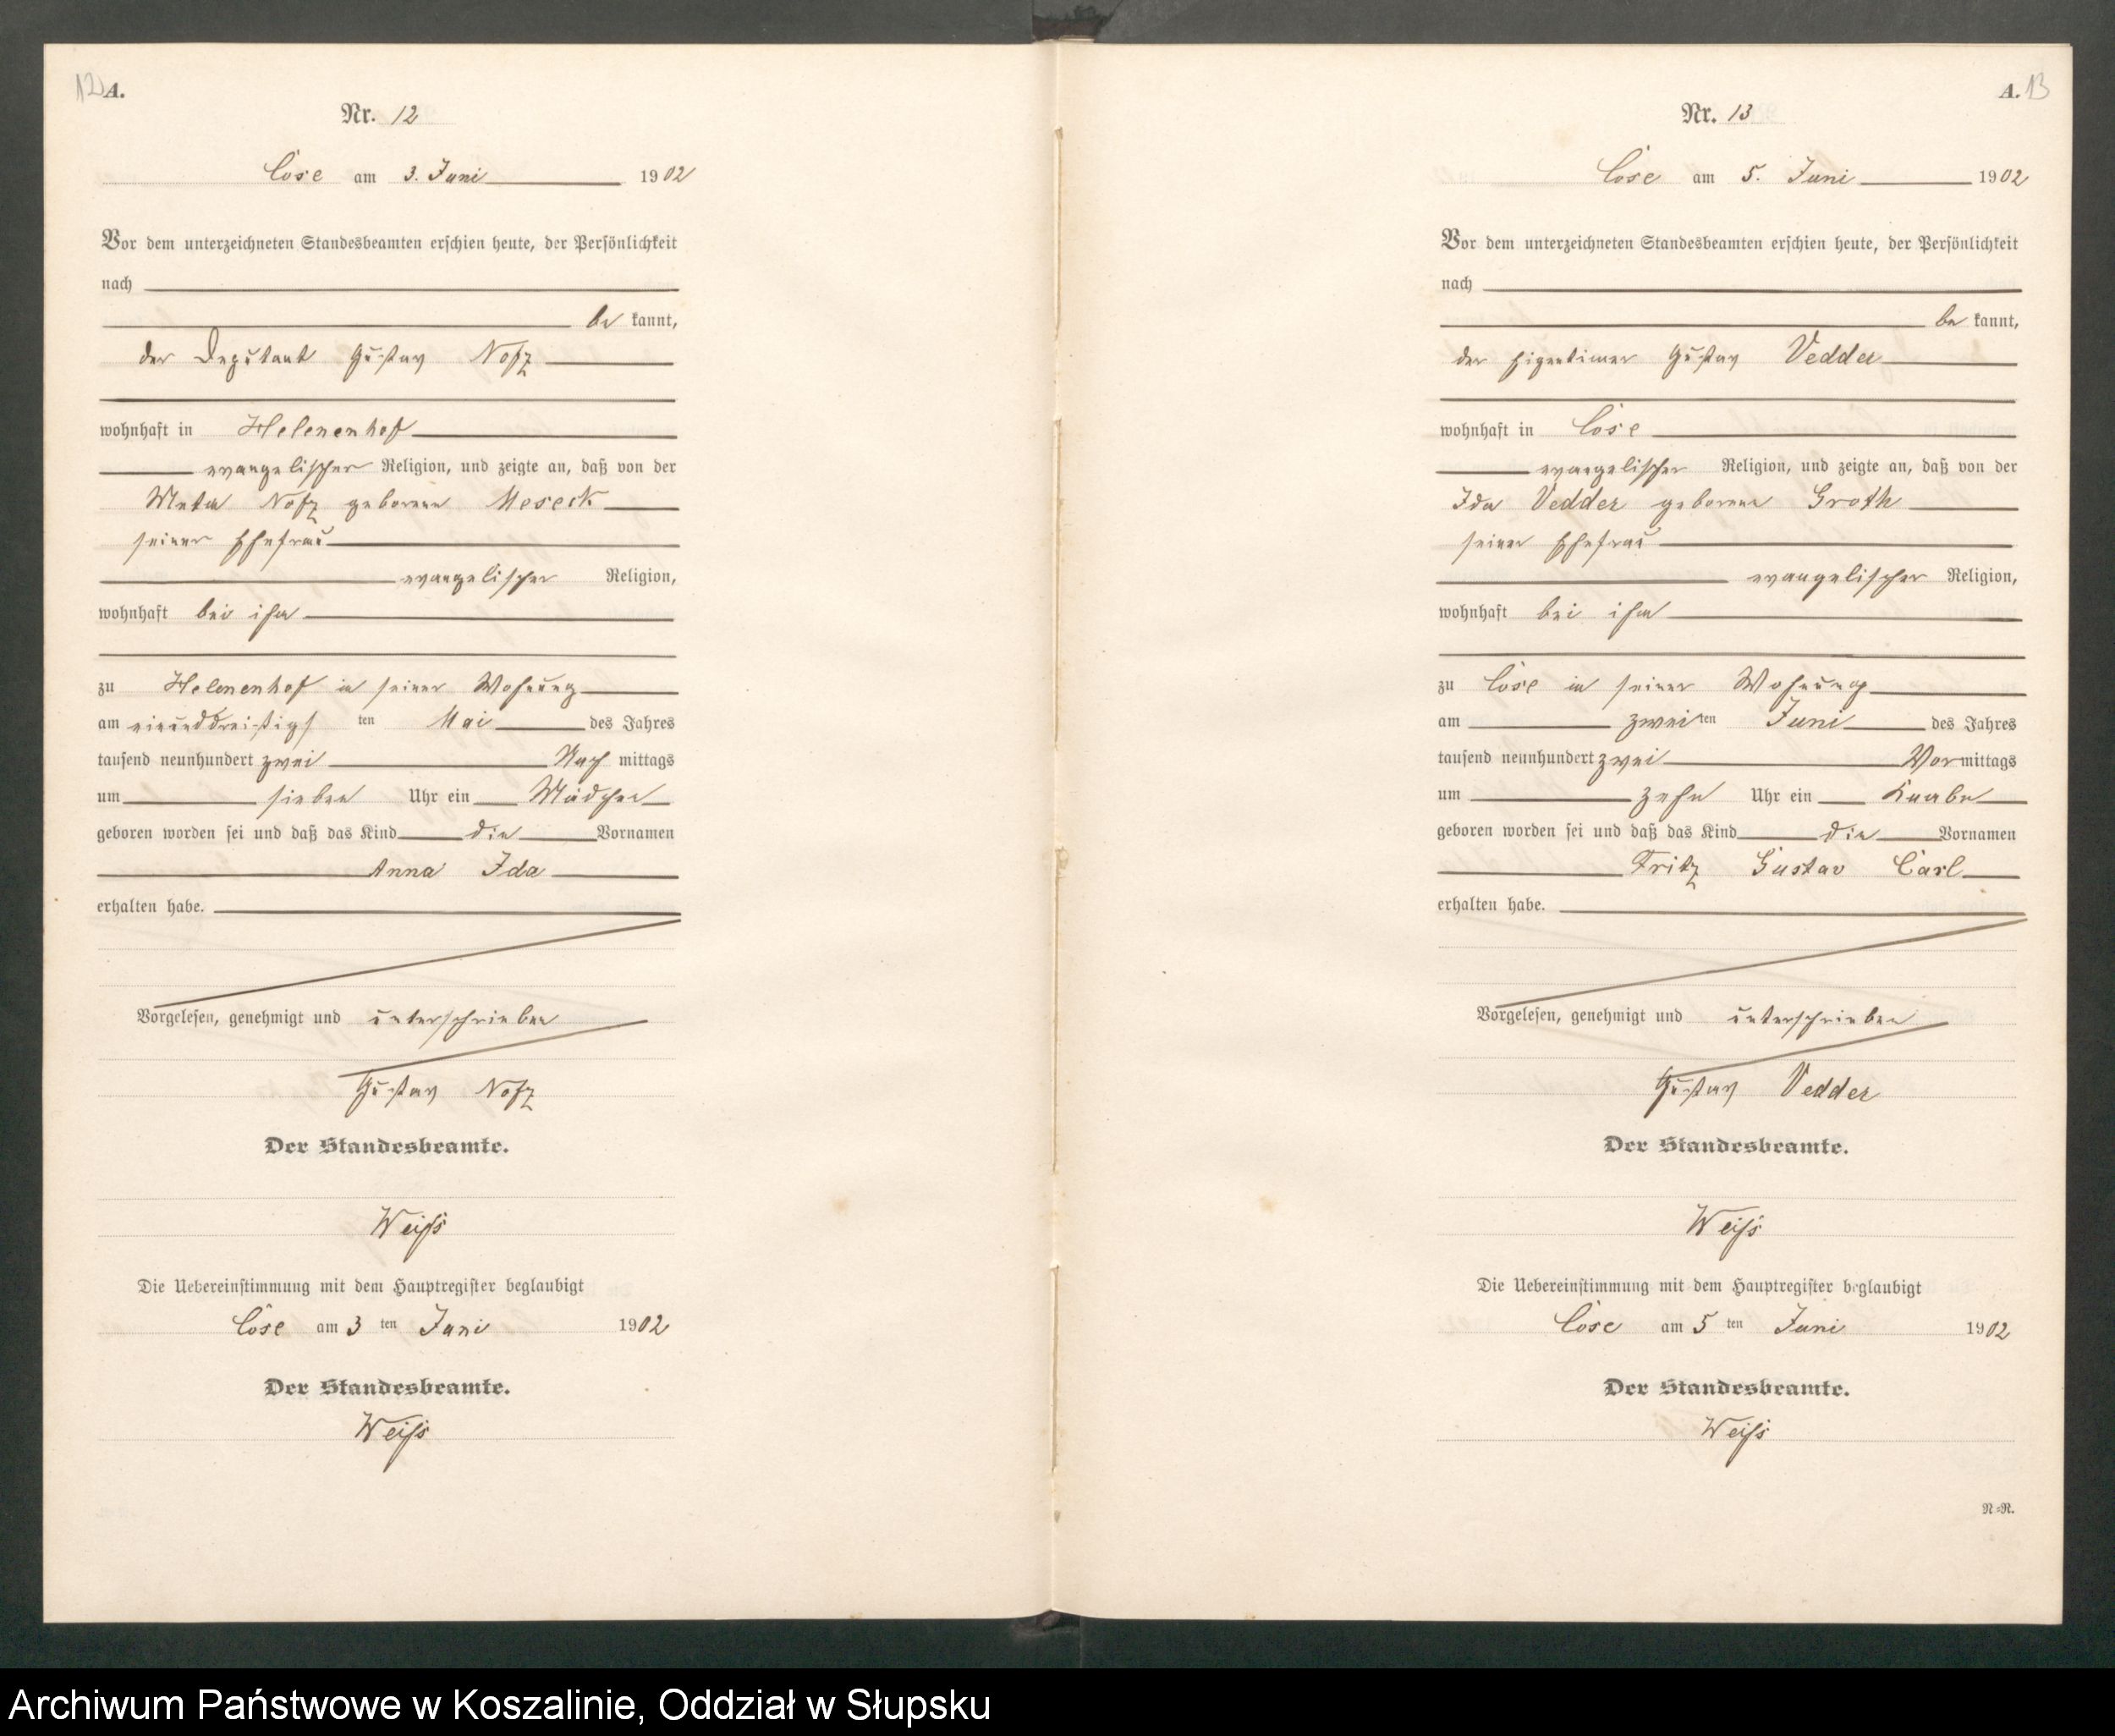 12 A.
Nr. 12
Cose am 3. Juni 1902
Vor dem unterzeichneten Standesbeamten erschien heute, der Persönlichkeit
nach
be kannt,
der Deputant Gustav Notz
wohnhaft in Helenenhof
evangelischer Religion, und zeigte an, daß von der
Meta Notz geborene Meseck
seiner Ehefrau
evangelischer Religion,
wohnhaft bei ihm
zu Helenenhof in seiner Wohnung
am einunddreißigs ten Mai des Jahres
tausend neunhundert zwei Nach mittags
um sieben Uhr ein Mädchen
geboren worden sei und daß das Kind die Vornamen
Anna Ida
erhalten habe.
Vorgelesen, genehmigt und unterschrieben
Gustav Notz
Der Standesbeamte.
Weiß
Die Uebereinstimmung mit dem Hauptregister beglaubigt
Cose am 3 ten Juni 1902
Der Standesbeamte.
Weiß
A. 13
Nr. 13
Cose am 5. Juni 1902
Vor dem unterzeichneten Standesbeamten erschien heute, der Persönlichkeit
nach
be kannt,
der Eigentümer Gustav Vedder
wohnhaft in Cose
evangelischer Religion, und zeigte an, daß von der
Ida Vedder geborene Groth
seiner Ehefrau
evangelischer Religion,
wohnhaft bei ihm
zu Cose in seiner Wohnung
am zwei ten Juni des Jahres
tausend neunhundert zwei Vor mittags
um zehn Uhr ein Knabe
geboren worden sei und daß das Kind die Vornamen
Fritz Gustav Carl
erhalten habe.
Vorgelesen, genehmigt und unterschrieben
Gustav Vedder
Der Standesbeamte.
Weiß
Die Uebereinstimmung mit dem Hauptregister beglaubigt
Cose am 5 ten Juni 1902
Der Standesbeamte.
Weiß
N=N.
Archiwum Państwowe w Koszalinie, Oddział w Słupsku